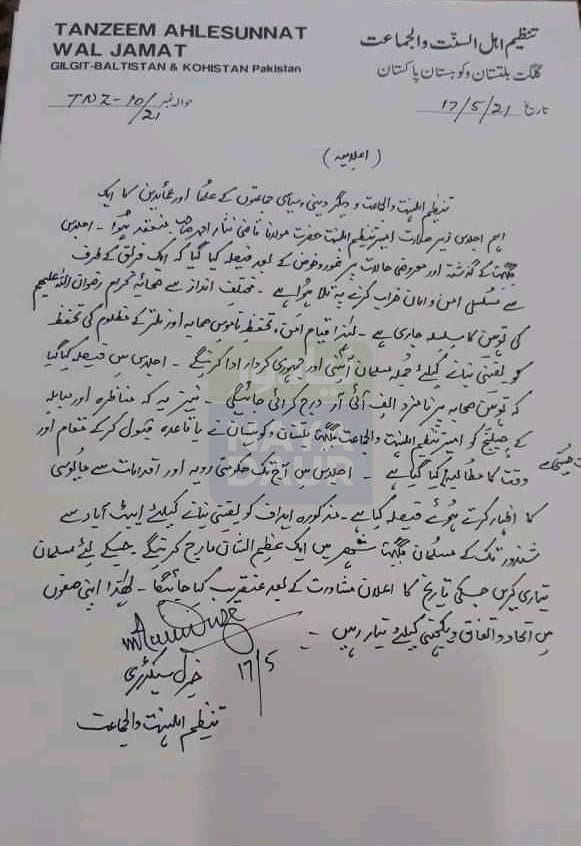 TANZEEM AHLESUNNAT
WAL JAMAT
GILGIT-BALTISTAN & KOHISTAN Pakistan
تنظیم اہل السنّت والجماعت
گلگت بلتستان وکوہستان پاکستان
حوالہ نمبر TNZ-10/21
تاریخ 17/5/21
(اعلامیہ)
تنظیم اہلسنت والجماعت و دیگر دینی وسیاسی جماعتوں کے علماء اور عمائدین کا ایک
اہم اجلاس زیر صدارت امیر تنظیم اہلسنت حضرت مولانا قاضی نثار احمد صاحب منعقد ہوا۔ اجلاس
گلگت کے گذشتہ اور معروضی حالات پر غوروخوض کے بعد فیصلہ کیا گیا کہ ایک فریق کے طرف
سے مسلسل امن وامان خراب کرنے پہ تلا ہوا ہے۔ مختلف انداز سے صحابہ کرام رضوان اللہ علیہم
کی توہین کا سلسلہ جاری ہے۔ لہٰذا قیام امن، تحفظ ناموس صحابہ اور نلتر کے مظلوم کی تحفظ
کو یقینی بنانے کیلئے جملہ مسلمان آئینی اور جمہوری کردار ادا کرینگے۔ اجلاس میں فیصلہ کیا گیا
کہ توہین صحابہ پر نامزد ایف آئی آر درج کرائی جائیگی۔ نیز یہ کہ مناظرہ اور مباہلہ
کے چیلنج کو امیر تنظیم اہلسنت والجماعت گلگت بلتستان وکوہستان نے باقاعدہ قبول کرکے مقام اور
وقت کا مطالبہ کیا گیا ہے۔ اجلاس میں آج تک حکومتی رویہ اور اقدامات سے مایوسی
کا اظہار کرتے ہوئے فیصلہ کیا ہے۔ مذکورہ اہداف کو یقینی بنانے کیلئے ایبٹ آباد سے
شندور تک کے مسلمان گلگت شہر میں ایک عظیم الشان مارچ کرینگے۔ جسکے لئے مسلمان
تیاری کریں جسکی تاریخ کا اعلان مشاورت کے بعد عنقریب کیا جائیگا۔ لہٰذا اپنی صفوں
میں اتحاد واتفاق ویکجہتی کیلئے تیار رہیں۔
17/5
جنرل سیکرٹری
تنظیم اہلسنت والجماعت
نیا دور
NAYA
DAUR